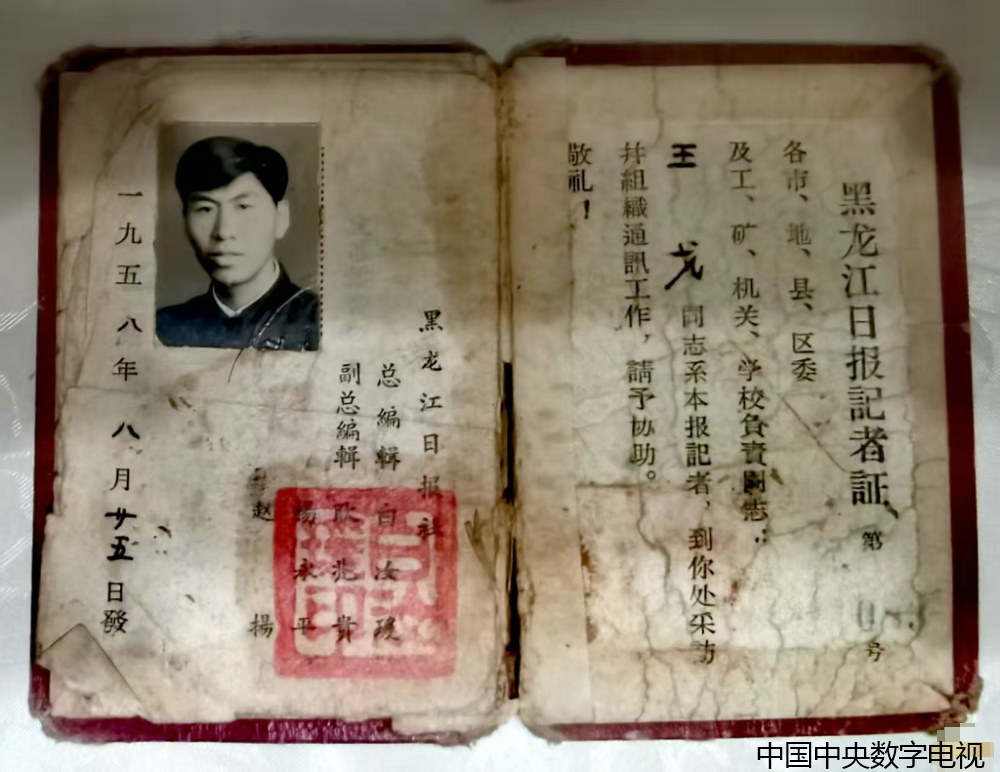 黑龙江日报記者証 第 号
各市、地、县、区委
及工、矿、机关、学校負責同志：
王 戈 同志系本报記者，到你处采訪
幷組織通訊工作，請予协助。
敬礼！
黑龙江日报社
总編輯 白汝瑗
副总編輯 耿兆貴
楊永平
赵 揚
一九五八年 八月廿五日發
中国中央数字电视